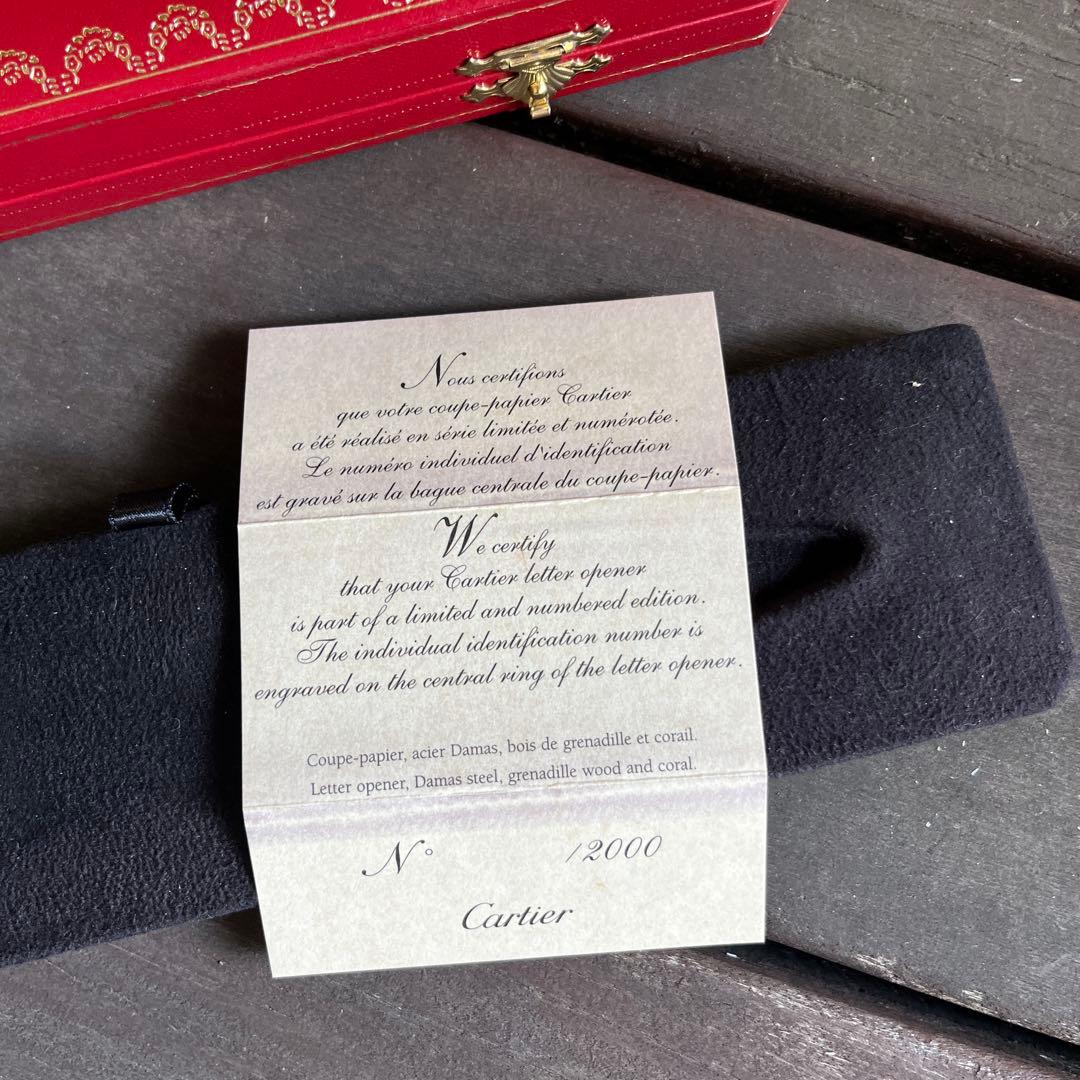 Nous certifions
que votre coupe-papier Cartier
a été réalisé en série limitée et numérotée.
Le numéro individuel d'identification
est gravé sur la bague centrale du coupe-papier.
We certify
that your Cartier letter opener
is part of a limited and numbered edition.
The individual identification number is
engraved on the central ring of the letter opener.
Coupe-papier, acier Damas, bois de grenadille et corail.
Letter opener, Damas steel, grenadille wood and coral.
N° /2000
Cartier